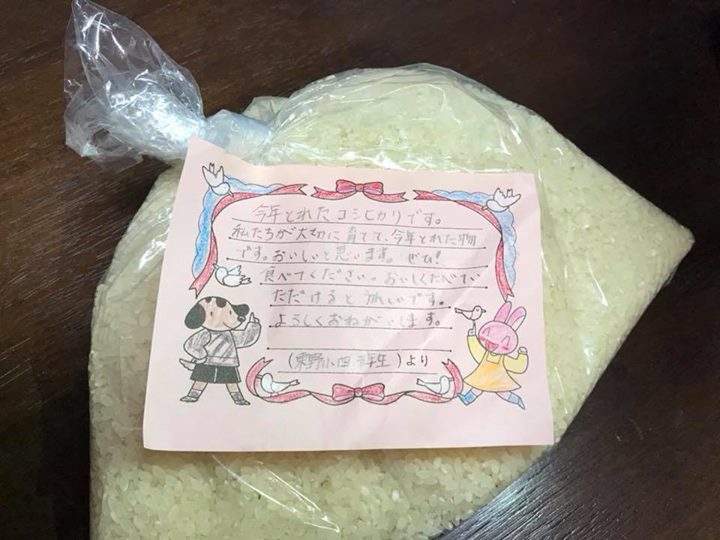 今年とれたコシヒカリです。
私たちが大切に育てて、今年とれた物
です。おいしいと思います。ぜひ!
食べてください。おいしくたべてい
ただけると うれしいです。
よろしくおねがいします。
(東野小四年生)より